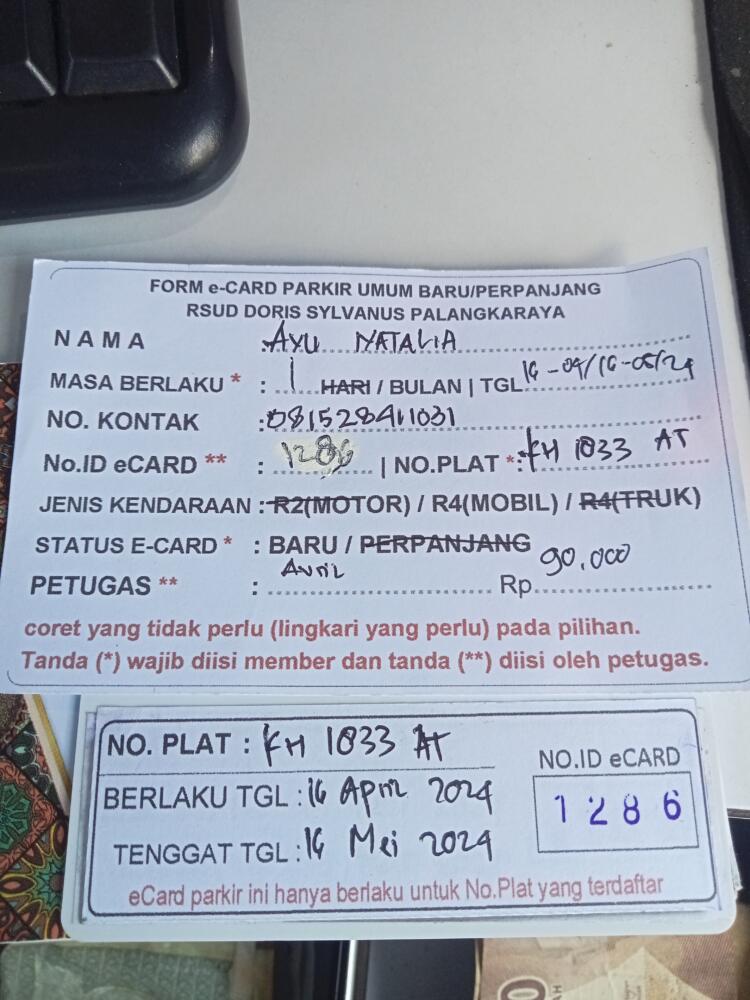 FORM e-CARD PARKIR UMUM BARU/PERPANJANG
RSUD DORIS SYLVANUS PALANGKARAYA
NAMA : AYU NATALIA
MASA BERLAKU * : 1 HARI / BULAN | TGL 16-04/16-05/24
NO. KONTAK : 081528411031
No.ID eCARD ** : 1286 | NO.PLAT *: KH 1033 AT
JENIS KENDARAAN : R2(MOTOR) / R4(MOBIL) / R4(TRUK)
STATUS E-CARD * : BARU / PERPANJANG
PETUGAS ** : Rp 90.000
coret yang tidak perlu (lingkari yang perlu) pada pilihan.
Tanda (*) wajib diisi member dan tanda (**) diisi oleh petugas.
NO. PLAT : KH 1033 AT
NO.ID eCARD
BERLAKU TGL : 16 April 2024
1286
TENGGAT TGL : 16 Mei 2024
eCard parkir ini hanya berlaku untuk No.Plat yang terdaftar